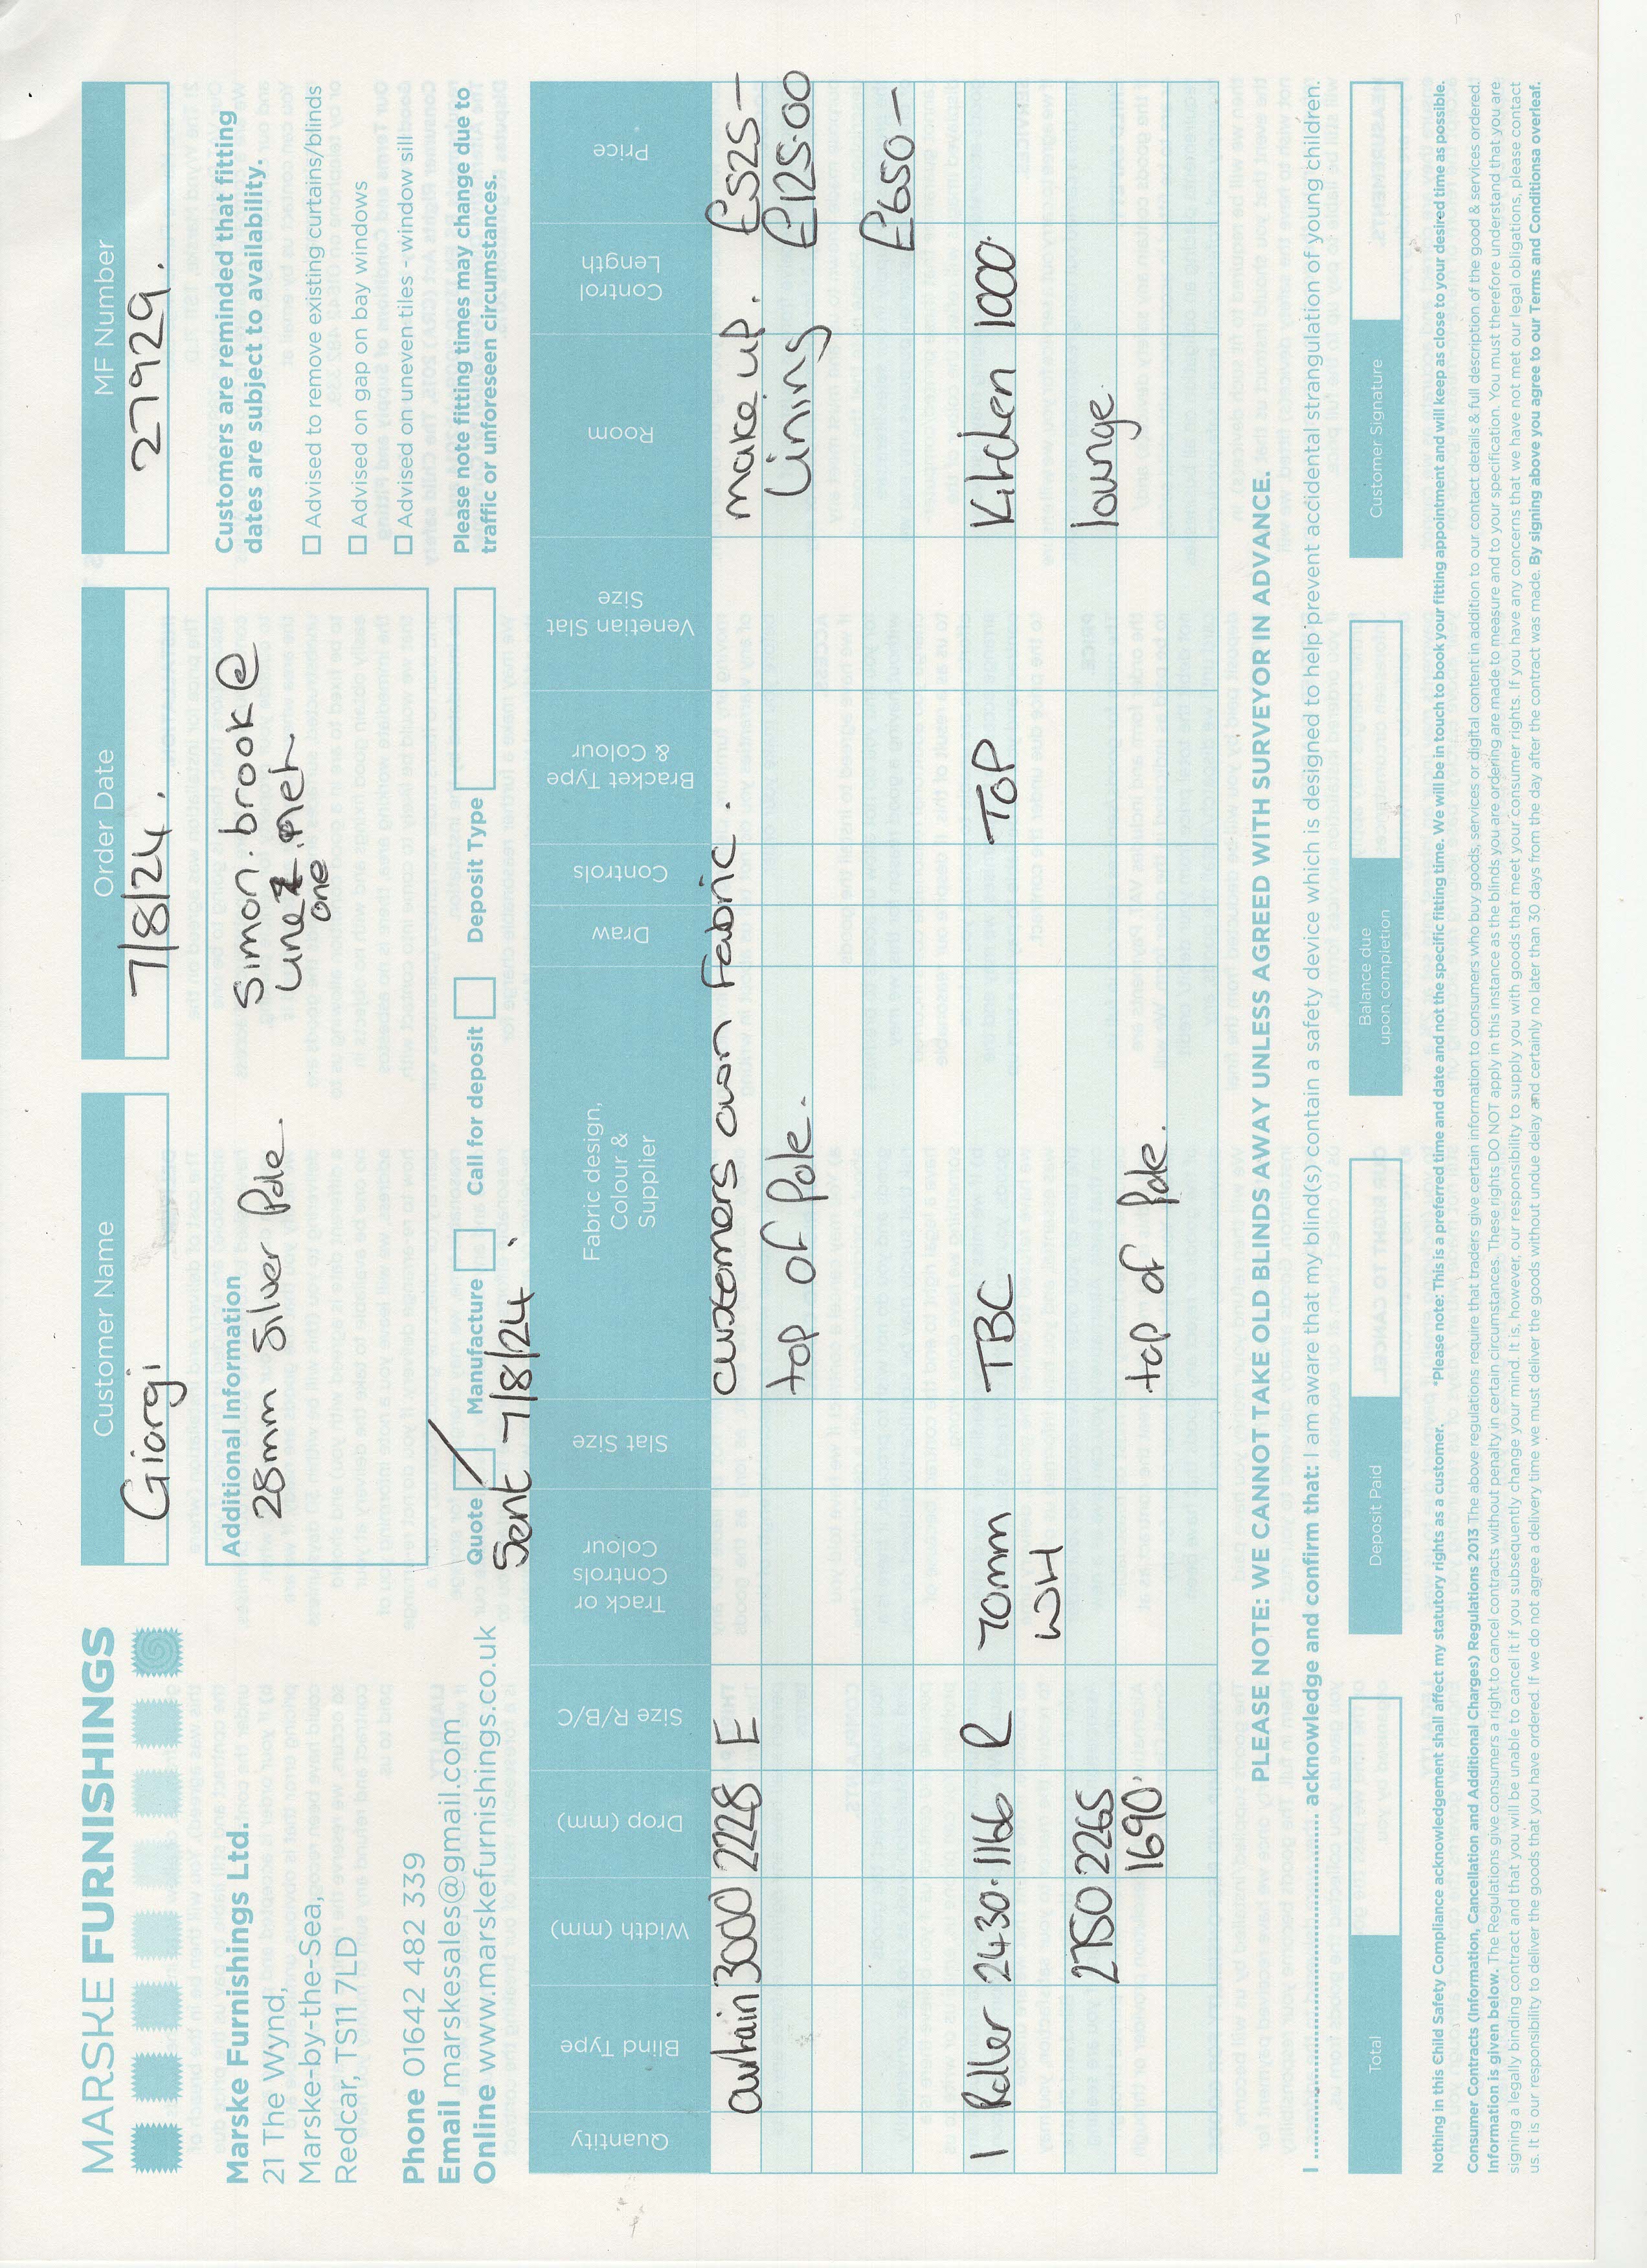 MARSKE FURNISHINGS
Marske Furnishings Ltd.
21 The Wynd,
Marske-by-the-Sea,
Redcar, TS11 7LD
Phone 01642 482 339
Email marskesales@gmail.com
Online www.marskefurnishings.co.uk
Customer Name
Giorgi
Order Date
7/8/24.
MF Number
27929.
Additional Information
28mm Silver Pole.
Simon.brook@
.net
one
Customers are reminded that fitting
dates are subject to availability.
Advised to remove existing curtains/blinds
Advised on gap on bay windows
Advised on uneven tiles - window sill
Please note fitting times may change due to
traffic or unforeseen circumstances.
Quote Manufacture Call for deposit Deposit Type
Sent 7/8/24.
Quantity Blind Type Width (mm) Drop (mm) Size R/B/C Track or Controls Colour Slat Size Fabric design, Colour & Supplier Draw Controls Bracket Type & Colour Venetian Slat Size Room Control Length Price
curtain 3000 2228 E customers own Fabric. make up. £525-
top of Pole. Lining £125.00
£650-
1 Roller 2430. 1166 R 70mm TBC TOP Kitchen 1000.
WH
2750 2265 lounge
1690. top of Pole.
PLEASE NOTE: WE CANNOT TAKE OLD BLINDS AWAY UNLESS AGREED WITH SURVEYOR IN ADVANCE.
I .......................................................... acknowledge and confirm that: I am aware that my blind(s) contain a safety device which is designed to help prevent accidental strangulation of young children.
Total
Deposit Paid
Balance due
upon completion
Customer Signature
Nothing in this Child Safety Compliance acknowledgement shall affect my statutory rights as a customer. *Please note: This is a preferred time and date and not the specific fitting time. We will be in touch to book your fitting appointment and will keep as close to your desired time as possible.
Consumer Contracts (Information, Cancellation and Additional Charges) Regulations 2013 The above regulations require that traders give certain information to consumers who buy goods, services or digital content in addition to our contact details & full description of the good & services ordered.
Information is given below. The Regulations give consumers a right to cancel contracts without penalty in certain circumstances. These rights DO NOT apply in this instance as the blinds you are ordering are made to measure and to your specification. You must therefore understand that you are
signing a legally binding contract and that you will be unable to cancel it if you subsequently change your mind. It is, however, our responsibility to supply you with goods that meet your consumer rights. If you have any concerns that we have not met our legal obligations, please contact
us. It is our responsibility to deliver the goods that you have ordered. If we do not agree a delivery time we must deliver the goods without undue delay and certainly no later than 30 days from the day after the contract was made. By signing above you agree to our Terms and Conditionsa overleaf.